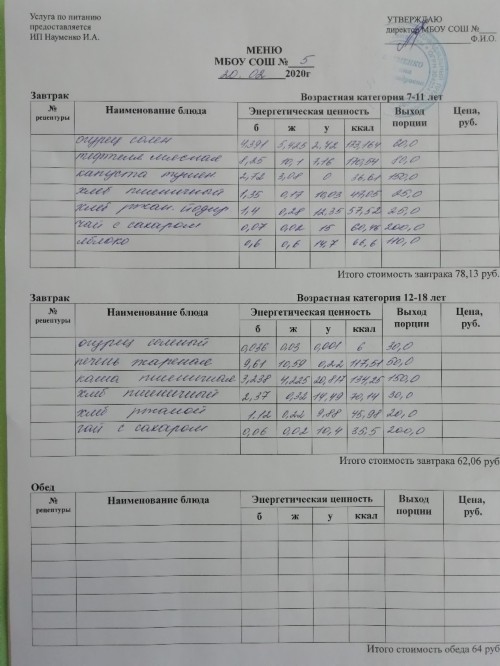 Услуга по питанию
предоставляется
ИП Науменко И.А.
УТВЕРЖДАЮ
директор МБОУ СОШ №____
Ф.И.О.
МЕНЮ
МБОУ СОШ № 5
20.02 2020г
Завтрак Возрастная категория 7-11 лет
№ рецептуры Наименование блюда Энергетическая ценность Выход порции Цена, руб.
б ж у ккал
огурец солен 4,391 5,423 2,72 60,0
мясная 1,25 10,1 3,16 80,0
капуста тушен 2,72 3,08 0 150,0
хлеб пшеничный 1,35 0,17 10,03 25,0
хлеб ржан. йодир 1,4 0,28 12,35 57,52 25,0
чай с сахаром 0,07 0,02 15 200,0
яблоко 0,6 0,6 14,7 66,6 110,0
Итого стоимость завтрака 78,13 руб.
Завтрак Возрастная категория 12-18 лет
№ рецептуры Наименование блюда Энергетическая ценность Выход порции Цена, руб.
б ж у ккал
огурец соленый 0,036 0,03 0,001 6 30,0
печень жареная 9,61 10,59 0,22 117,51 50,0
каша пшеничная 3,238 4,225 20,817 134,25 150,0
хлеб пшеничный 2,37 0,32 14,49 70,14 30,0
хлеб ржаной 1,12 0,22 9,88 45,98 20,0
чай с сахаром 0,06 0,02 10,4 35,5 200,0
Итого стоимость завтрака 62,06 руб
Обед
№ рецептуры Наименование блюда Энергетическая ценность Выход порции Цена, руб.
б ж у ккал
Итого стоимость обеда 64 руб